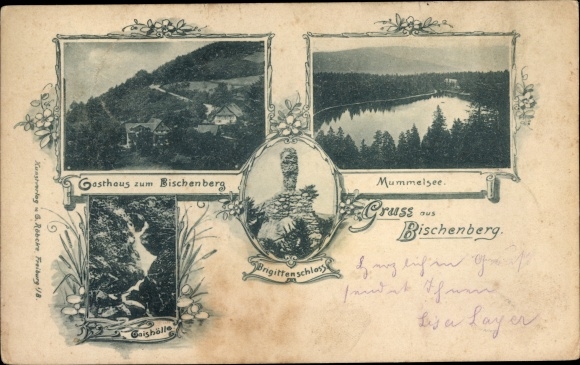 Gasthaus zum Bischenberg
Mummelsee.
Gruss aus
Bischenberg.
Brigittenschloss
Gaishölle
Kunstverlag v. G. Röbcke, Freiburg i/B.
Herzlichen Gruß
sendet Ihnen
Lisa Layer